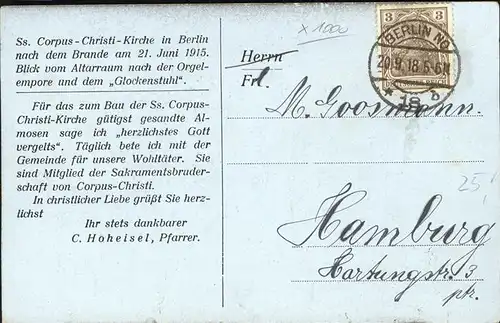 Ss. Corpus-Christi-Kirche in Berlin
nach dem Brande am 21. Juni 1915.
Blick vom Altarraum nach der Orgel-
empore und dem „Glockenstuhl".
Für das zum Bau der Ss. Corpus-
Christi-Kirche gütigst gesandte Al-
mosen sage ich „herzlichstes Gott
vergelts". Täglich bete ich mit der
Gemeinde für unsere Wohltäter. Sie
sind Mitglied der Sakramentsbruder-
schaft von Corpus-Christi.
In christlicher Liebe grüßt Sie herz-
lichst
Ihr stets dankbarer
C. Hoheisel, Pfarrer.
x 1000
3 3
BERLIN NO
20.9.18.5-6N
18
Herrn
Frl.
M. Goosmann.
25
Hamburg
Hartungstr. 3
ptr.